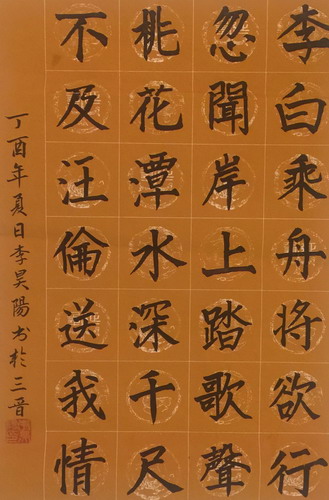 李白乘舟將欲行
忽聞岸上踏歌聲
桃花潭水深千尺
不及汪倫送我情
丁酉年夏日李昊陽书於三晉